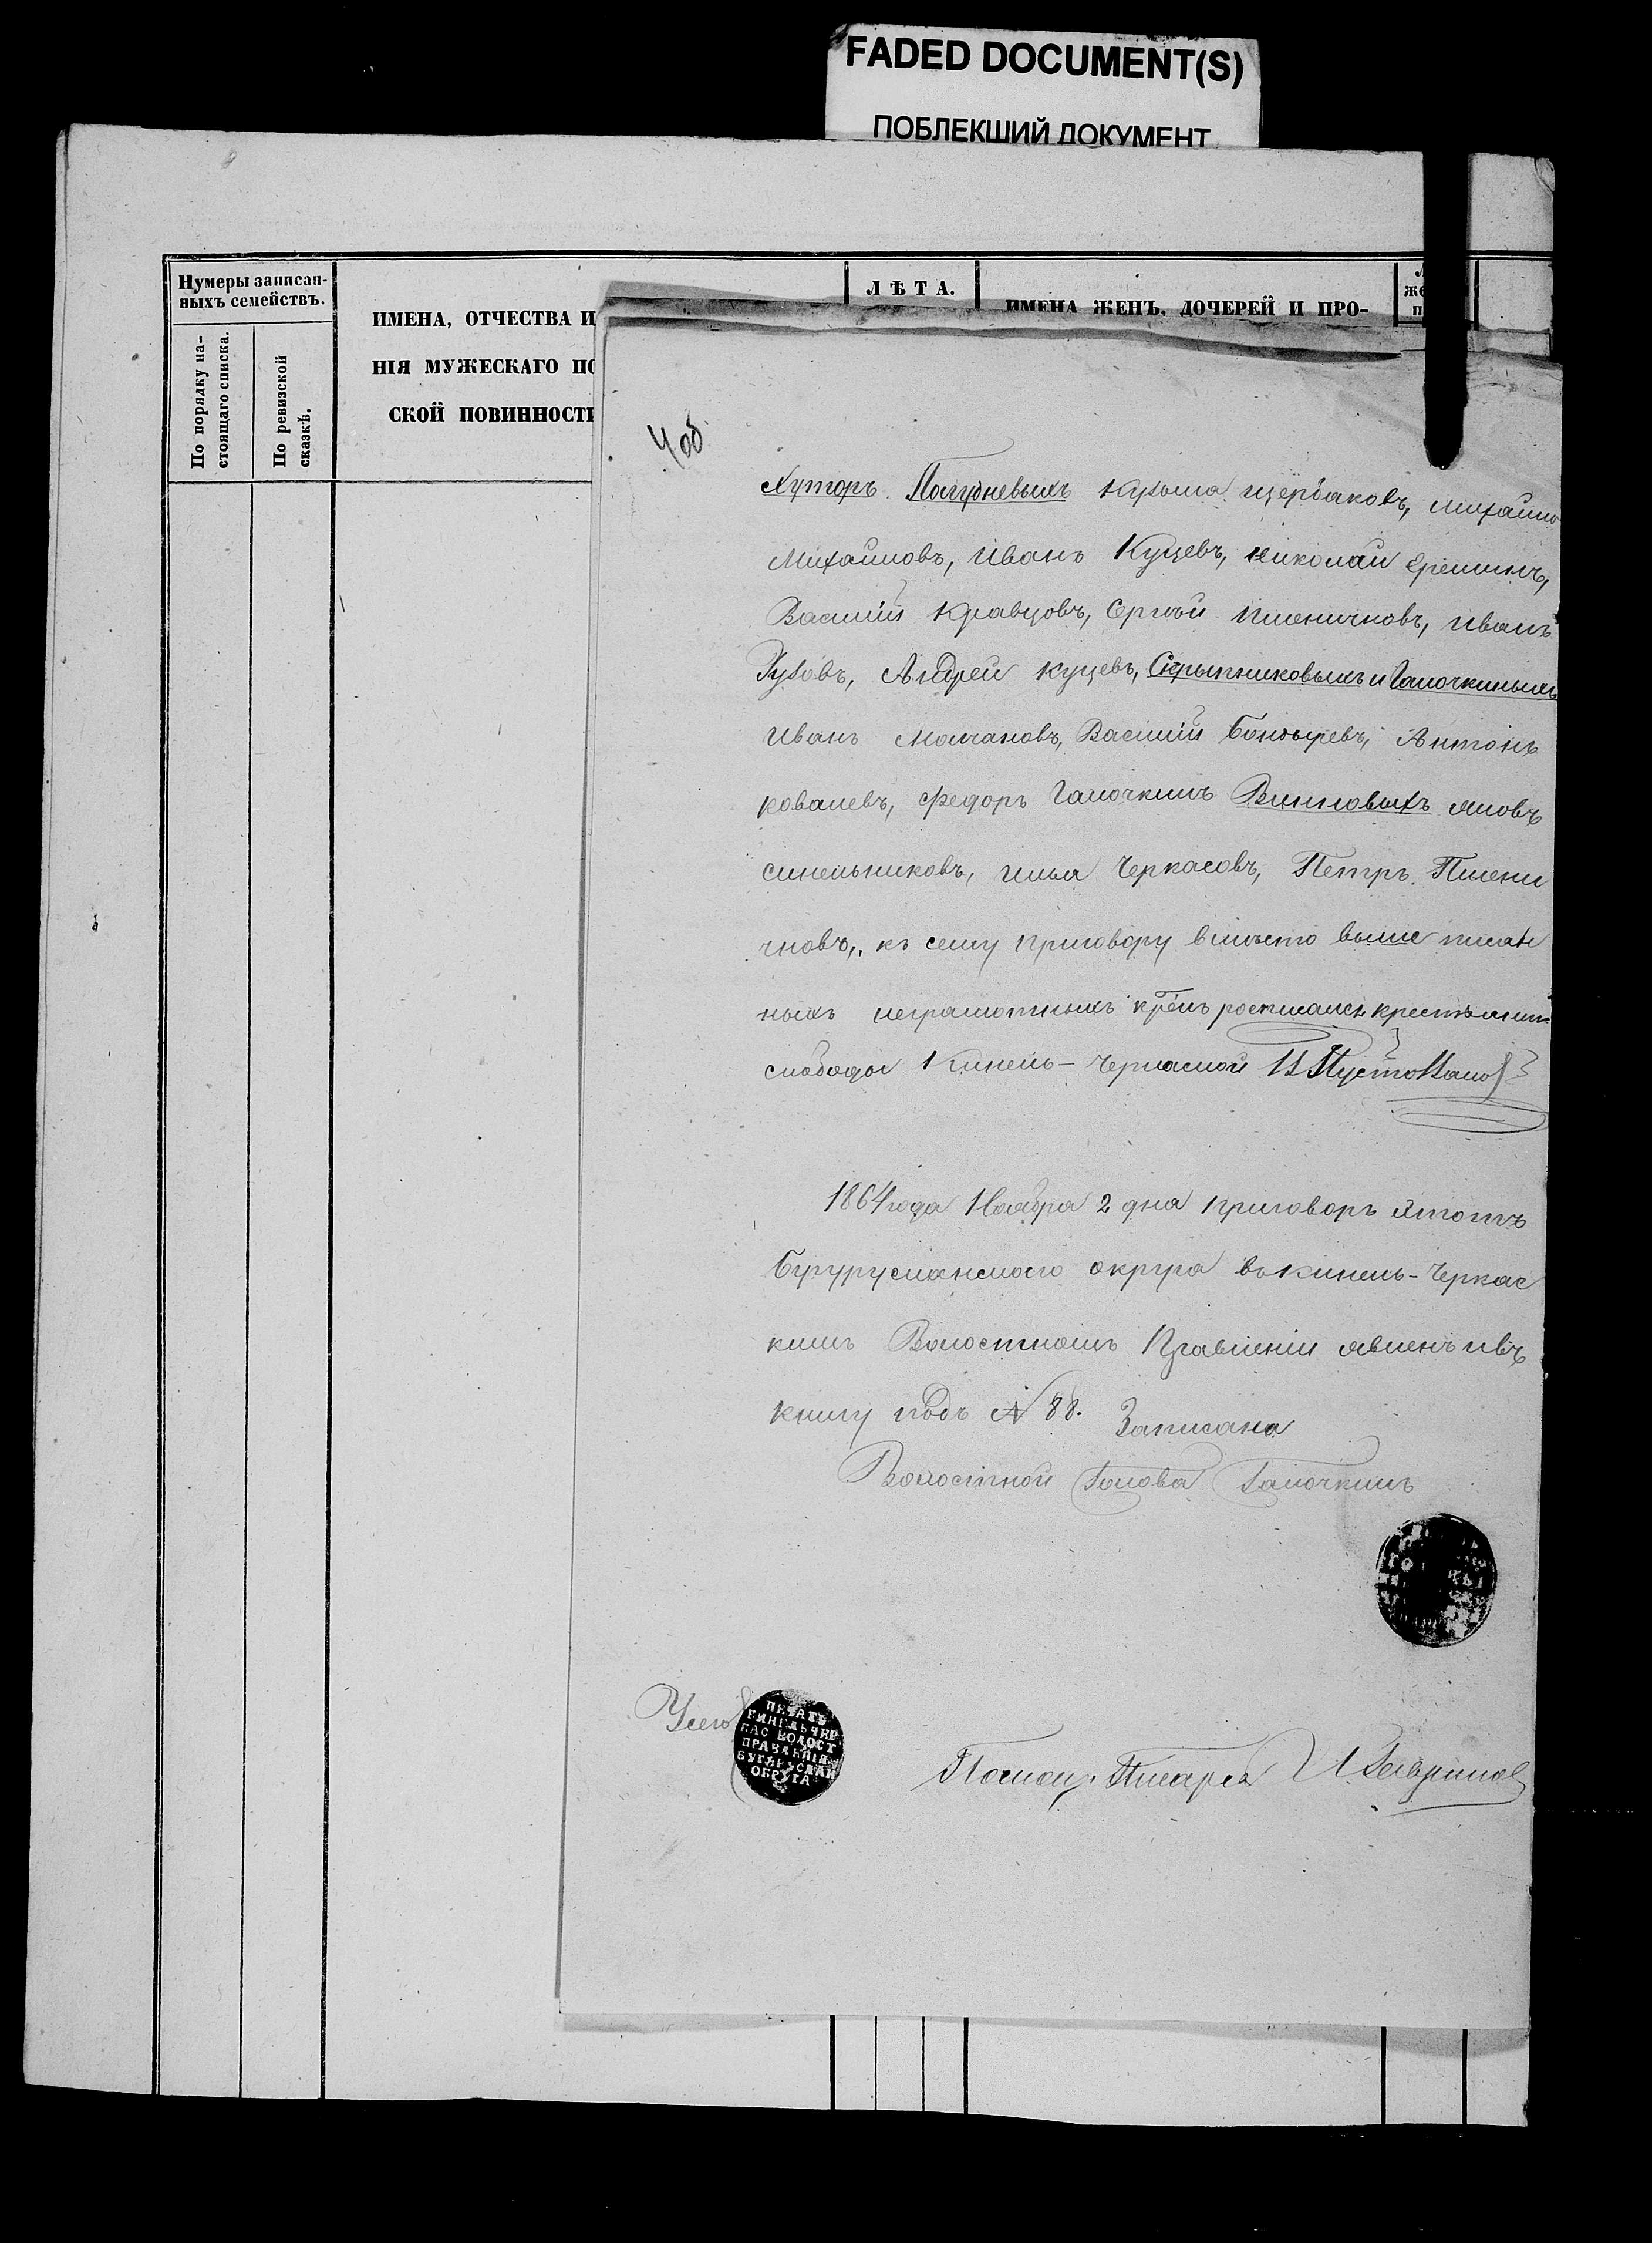 FADED DOCUMENT(S)
ПОБЛЕКШИЙ ДОКУМЕНТ
Нумеры записан-
ныхъ семействъ.
По порядку на-
стоящаго списка.
По ревизской
сказкѣ.
ИМЕНА, ОТЧЕСТВА И
НІЯ МУЖЕСКАГО ПО
СКОЙ ПОВИННОСТИ
ЛѢТА.
ИМЕНА ЖЕНЪ, ДОЧЕРЕЙ И ПРО-
4об
Хуторъ Кузьма щербаковъ, михаило
Михаиловъ, иванъ Куцевъ, николаи Ереминъ,
Василій Кравцовъ, Сергѣй пшеничновъ, иванъ
Андреи куцевъ, Скрыпниковыхъ и Галочкиныхъ
иванъ молчановъ, Василій Антонъ
ковалевъ, федоръ Галочкинъ Винновыхъ яковъ
синельниковъ, илья Черкасовъ, Петръ Пшени
чновъ, къ сему приговору вмѣсто выше писан
ныхъ неграмотныхъ росписался крестьянинъ
слободы Кинель-Черкаской
1864 года Ноября 2 дня приговоръ этотъ
Бугурусланского округа въ кинель-Черкас
комъ Волостномъ Правленіи явленъ ивъ
книгу подъ № 88. Записанъ
Волостной Голова Галочкинъ
ПЕЧАТЬ
КИНЕЛЬЧЕР
КАС ВОЛОСТ
ПРАВЛЕНІЯ
БУГУРУСЛАН
ОКРУГА
Помощ. Писаря